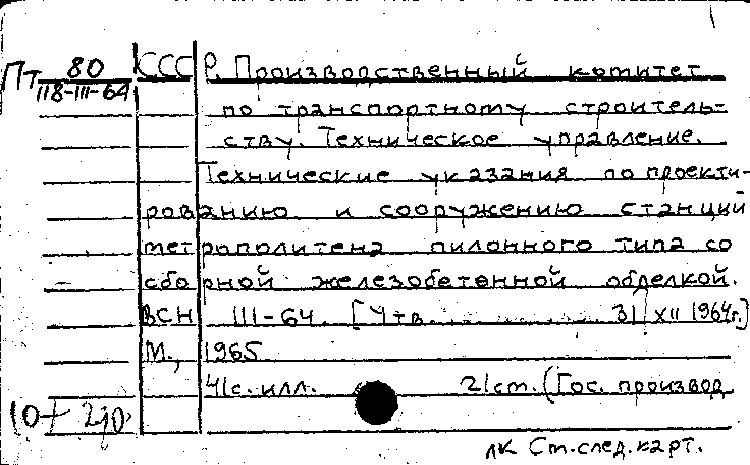 Пт 80 СССР. Производственный комитет
118-III-64
по транспортному строитель-
ству. Техническое управление.
Технические указания по проекти-
рованию и сооружению станций
метрополитена пилонного типа со
сборной железобетонной обделкой.
ВСН 111-64. [Утв. ............ 31/XII 1964г.]
М., 1965
41с. илл. 21см. (Гос. производ
10+
лк См. след. карт.